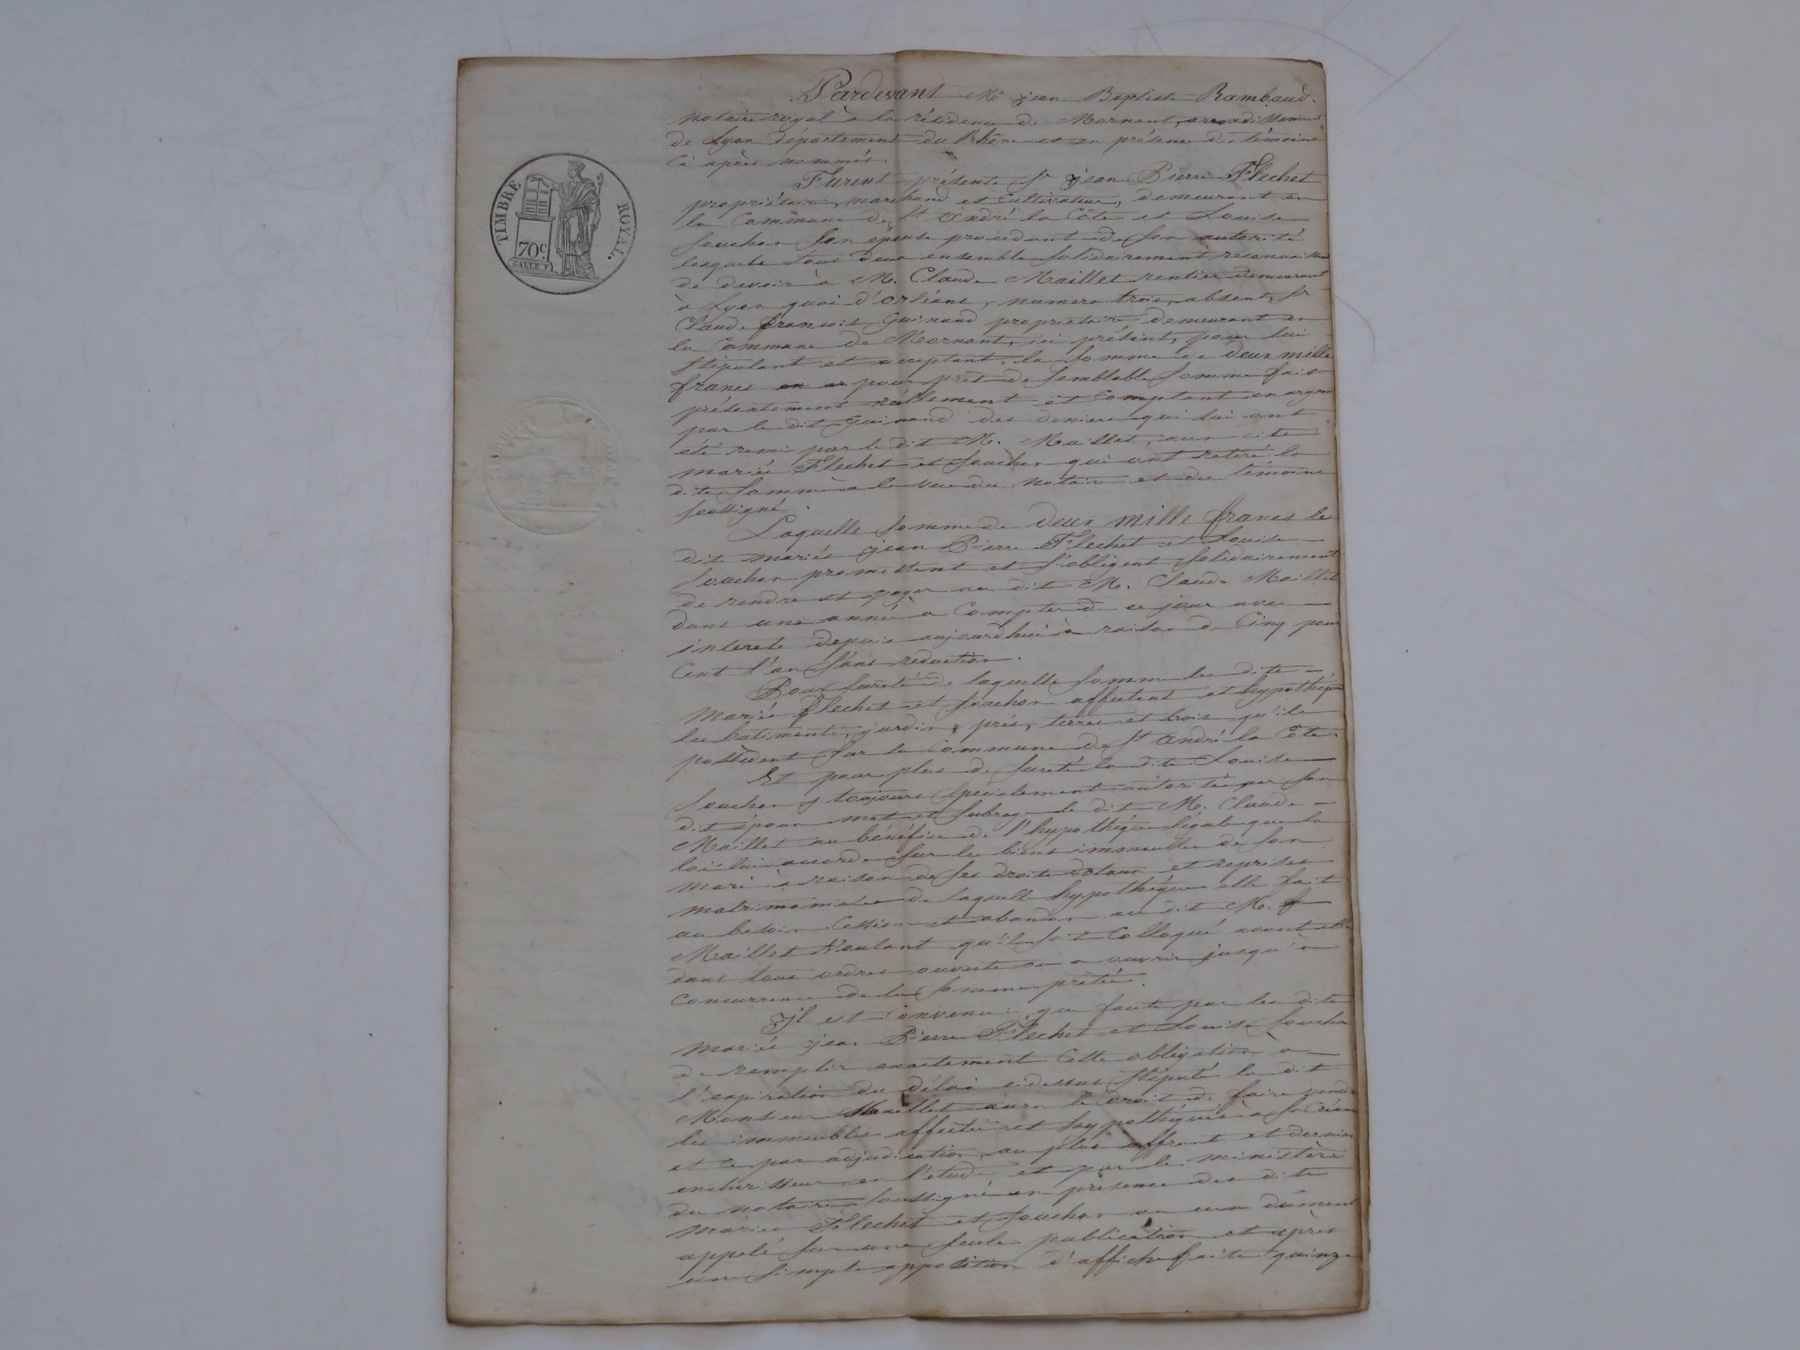 TIMBRE ROYAL.
70c.
Pardevant Me jean Baptiste Rambaud
notaire royal à la résidence de Mornant, arrondissement
de Lyon département du Rhône et en présence de témoins
ci après nommés.
Furent présents Sr jean Pierre Flechet
propriétaire, marchand et cultivateur, demeurant en
la Commune de St André la Côte et Louise
Souchon son épouse procedant de son autorité
lesquels tous deux ensemble solidairement reconnaissent
de devoir à M. Claude Maillet rentier demeurant
à Lyon quai d'orléans, numero trois, absent, Sr
Claude françois Guinand propriétaire demeurant en
la Commune de Mornant, ici présent, pour lui
stipulant et acceptant, la somme de deux mille
francs pour prêt de semblable somme fait
présentement réellement et comptant en argent
par le dit Guinand des deniers qui lui ont
été remis par le dit M. Maillet, aux dits
mariés Flechet et Souchon qui ont retiré la
dite somme à la vue du notaire et des témoins
soussignés.
Laquelle somme de deux mille francs les
dits mariés jean Pierre Flechet et Louise
Souchon promettent et s'obligent solidairement
de rendre et payer au dit M. Claude Maillet
dans une année à compter de ce jour avec
interets depuis aujourdhui à raison de Cinq pour
Cent l'an sans reduction.
Pour sureté de laquelle somme les dits
mariés flechet et Souchon affectent et hypothèquent
les batiments, jardin, prés, terres et bois qu'ils
possèdent sur la Commune de St André la Côte.
Et pour plus de sureté la dite Louise
Souchon toujours spécialement autorisée par son
dit époux met et subroge le dit M. Claude
Maillet au bénéfice de l'hypothèque légale que la
loi lui accorde sur les biens immeubles de son
mari à raison de ses droits dotaux et reprises
matrimoniales de laquelle hypothèque elle fait
au besoin Cession et abandon au dit M.
Maillet Voulant qu'il soit Colloqué avant elle
dans tous ordres ouverts ou a ouvrir jusqu'à
Concurrence de la somme prêtée.
Il est Convenu que faute par les dits
mariés jean Pierre Flechet et Louise Souchon
de remplir exactement cette obligation à
l'expiration du délai cidessus stipulé le dit
Monsieur Maillet aura le droit de faire vendre
les immeubles affectés et hypothéqués à sa Créance
et ce par adjudication, au plus offrant et dernier
enchérisseur en l'etude et par le ministère
du notaire soussigné en présence des dits
mariés Flechet et Souchon ou eux dûment
appelés sur une seule publication et après
une simple apposition d'affiche faite quinze